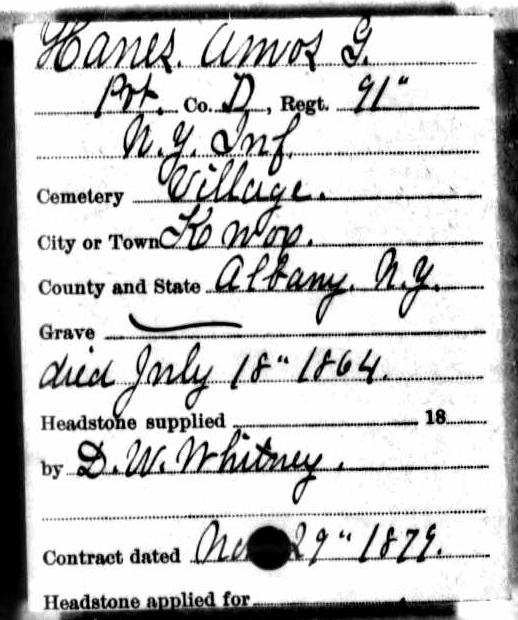 Hanes. Amos G.
Pvt. Co. D, Regt. 91"
N.Y. Inf.
Cemetery Village.
City or Town Knox.
County and State Albany, N.Y.
Grave
died July 18" 1864.
Headstone supplied 18
by D. W. Whitney.
Contract dated 29" 1879.
Headstone applied for